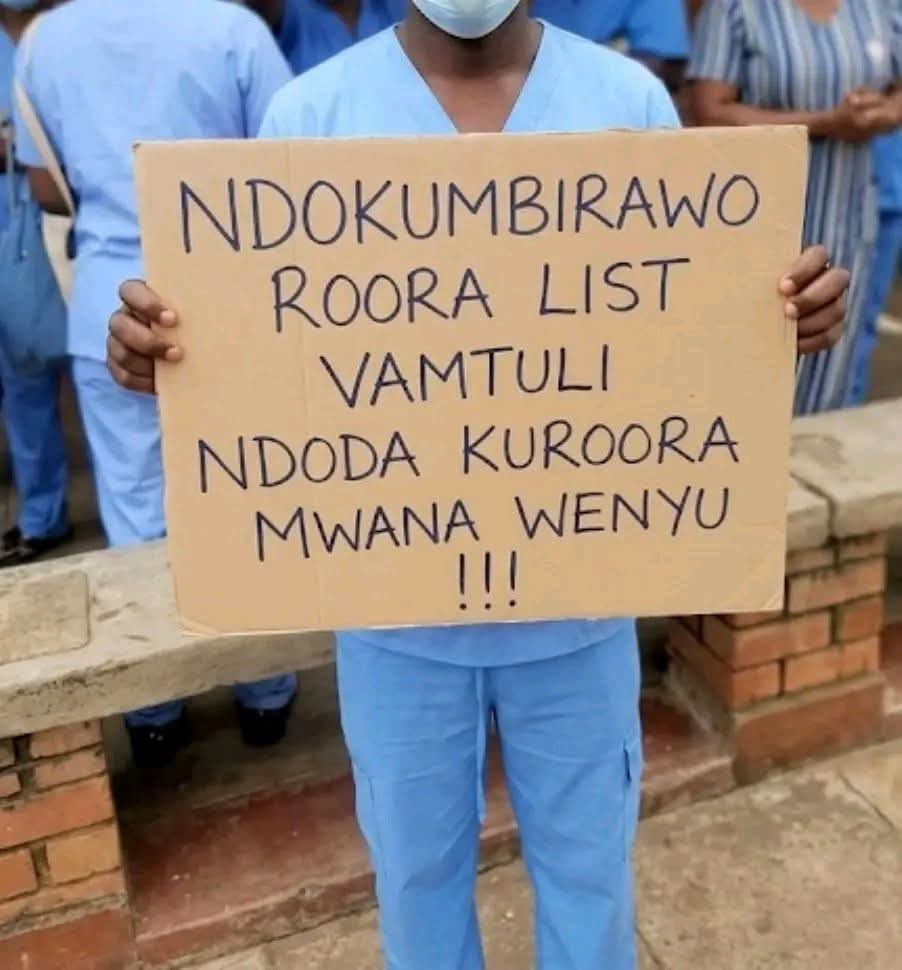 NDOKUMBIRAWO
ROORA LIST
VAMTULI
NDODA KUROORA
MWANA WENYU
!!!